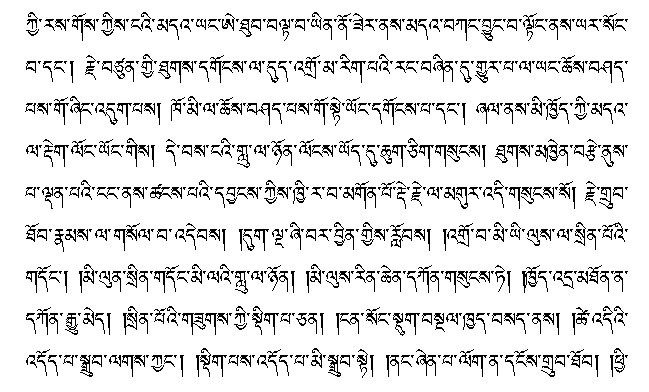 ཀྱི་རས་གོས་ཀྱིས་ངའི་མདའ་ཡང་ཨེ་ཐུབ་བལྟ་བ་ཡིན་ནོ་ཟེར་ནས་མདའ་བཀང་བྱུང་བ་ལྟོང་ནས་ཡར་སོང་
བ་དང་། རྗེ་བཙུན་གྱི་ཐུགས་དགོངས་ལ་དུད་འགྲོ་མ་རིག་པའི་རང་བཞིན་དུ་གྱུར་པ་ལ་ཡང་ཆོས་བཤད་
པས་གོ་ཞིང་འདུག་པས། ཁོ་མི་ལ་ཆོས་བཤད་པས་གོ་སྟེ་ཡོང་དགོངས་པ་དང་། ཞལ་ནས་མི་ཁྱོད་ཀྱི་མདའ་
ལ་རྡེག་ལོང་ཡོང་གིས། དེ་བས་ངའི་གླུ་ལ་ཉོན་ལོངས་ཡོད་དུ་ཆུག་ཅིག་གསུངས། ཐུགས་མཁྱེན་བརྩེ་ནུས་
པ་ལྡན་པའི་ངང་ནས་ཚངས་པའི་དབྱངས་ཀྱིས་ཁྱི་ར་བ་མགོན་པོ་རྡོ་རྗེ་ལ་མགུར་འདི་གསུངས་སོ། རྗེ་གྲུབ་
ཐོབ་རྣམས་ལ་གསོལ་བ་འདེབས། །དུག་ལྔ་ཞི་བར་བྱིན་གྱིས་རློབས། །འགྲོ་བ་མི་ཡི་ལུས་ལ་སྲིན་པོའི་
གདོང་། །མི་ལུན་སྲིན་གདོང་མི་ལའི་གླུ་ལ་ཉོན། །མི་ལུས་རིན་ཆེན་དཀོན་གསུངས་ཏེ། །ཁྱོད་འདྲ་མཐོན་ན་
དཀོན་རྒྱུ་མེད། །སྲིན་པོའི་གཟུགས་ཀྱི་སྡིག་པ་ཅན། །ངན་སོང་སྡུག་བསྔལ་ཁྱད་བསད་ནས། །ཚེ་འདིའི་
འདོད་པ་སྒྲུབ་ལགས་ཀྱང་། །སྡིག་པས་འདོད་པ་མི་སྒྲུབ་སྟེ། །ནང་ཞེན་པ་ལོག་ན་དངོས་གྲུབ་ཐོབ། །ཕྱི་